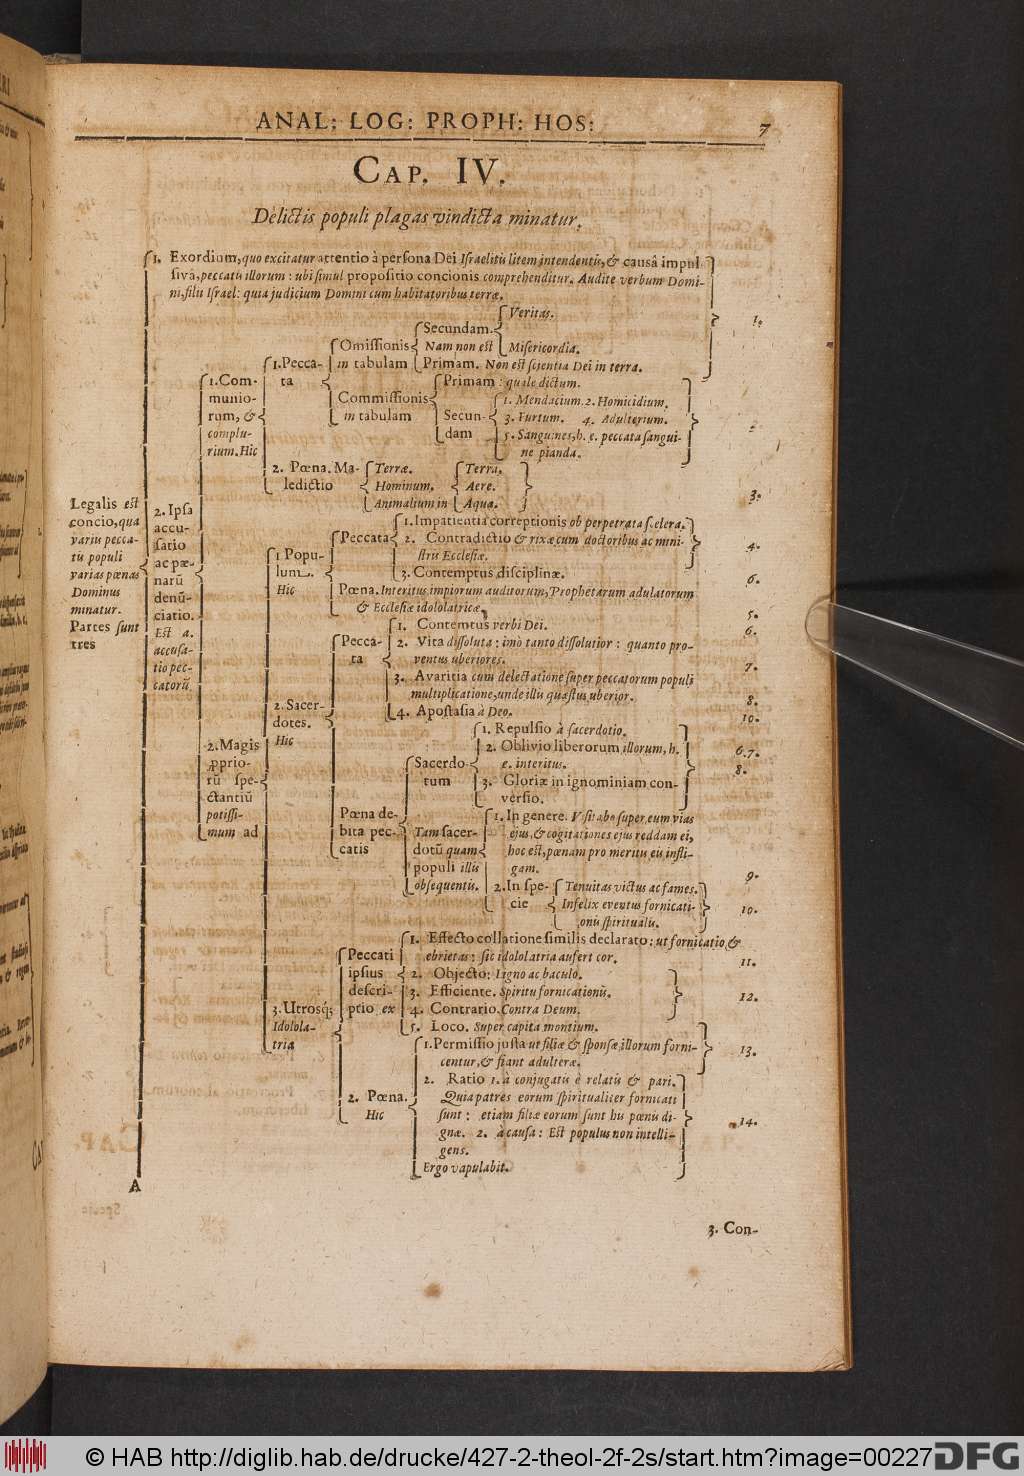 ANAL: LOG: PROPH: HOS: 7
CAP. IV.
Delictis populi plagas vindicta minatur.
1. Exordium, quo excitatur attentio à persona Dei Israelitis litem intendentis, & causâ impul
sivâ, peccatis illorum: ubi simul propositio concionis comprehenditur. Audite verbum Domi-
ni, filii Israel: quia judicium Domini cum habitatoribus terræ.
1.
Legalis est
concio, qua
variis pecca-
tis populi
varias pœnas
Dominus
minatur.
Partes sunt
tres
2. Ipsa
accu-
satio
ac pæ-
narū
denū-
ciatio.
Est a.
accusa-
tio pec-
catorū
1. Com-
munio-
rum, &
complu-
rium. Hic
1. Pecca-
ta
Omissionis
in tabulam
Secundam.
Nam non est
Veritas.
Misericordia.
Primam. Non est scientia Dei in terra.
Commissionis
in tabulam
Primam: quale dictum.
Secun-
dam
1. Mendacium. 2. Homicidium.
3. Furtum. 4. Adulterium.
5. Sanguines, h. e. peccata sangui-
ne pianda.
2.
2. Pœna. Ma-
ledictio
Terræ.
Hominum.
Animalium in
Terra.
Aere.
Aqua.
3.
2. Magis
ꝓprio-
rū spe-
ctantiū
potissi-
mum ad
1 Popu-
lum.
Hic
Peccata
1. Impatientia correptionis ob perpetrata scelera.
2. Contradictio & rixæ cum doctoribus ac mini-
stris Ecclesiæ.
3. Contemptus disciplinæ.
4.
6.
Pœna. Interitus impiorum auditorum, Prophetarum adulatorum
& Ecclesiæ idololatricæ.
5.
2. Sacer-
dotes.
Hic
Pecca-
ta
1. Contemtus verbi Dei.
6.
2. Vita dissoluta: imò tanto dissolutior: quanto pro-
ventus uberiores.
7.
3. Avaritia cum delectatione super peccatorum populi
multiplicatione, unde illis quæstus uberior.
8.
4. Apostasia à Deo.
10.
Pœna de-
bita pec-
catis
Sacerdo-
tum
1. Repulsio à sacerdotio.
2. Oblivio liberorum illorum, h.
e. interitus.
3. Gloriæ in ignominiam con-
versio.
6. 7.
8.
Tam sacer-
dotū quam
populi illis
obsequentis.
1. In genere. Visitabo super eum vias
ejus, & cogitationes ejus reddam ei,
hoc est, pœnam pro meritis eis infli-
gam.
9.
2. In spe-
cie
Tenuitas victus ac fames.
Infelix eventus fornicati-
onis spiritualis.
10.
3. Utrosq;
Idolola-
tria
Peccati
ipsius
descri-
ptio ex
1. Effecto collatione similis declarato: ut fornicatio &
ebrietas: sic idololatria aufert cor.
11.
2. Objecto: Ligno ac baculo.
3. Efficiente. Spiritu fornicationis.
4. Contrario. Contra Deum.
12.
5. Loco. Super capita montium.
2. Pœna.
Hic
1. Permissio justa ut filiæ & sponsæ illorum forni-
centur, & fiant adulteræ.
13.
2. Ratio 1. à conjugatis è relatis & pari.
Quia patres eorum spiritualiter fornicati
sunt: etiam filiæ eorum sunt his pœnis di-
gnæ. 2. à causa: Est populus non intelli-
gens.
14.
Ergo vapulabit.
A
3. Con-
© HAB http://diglib.hab.de/drucke/427-2-theol-2f-2s/start.htm?image=00227
DFG